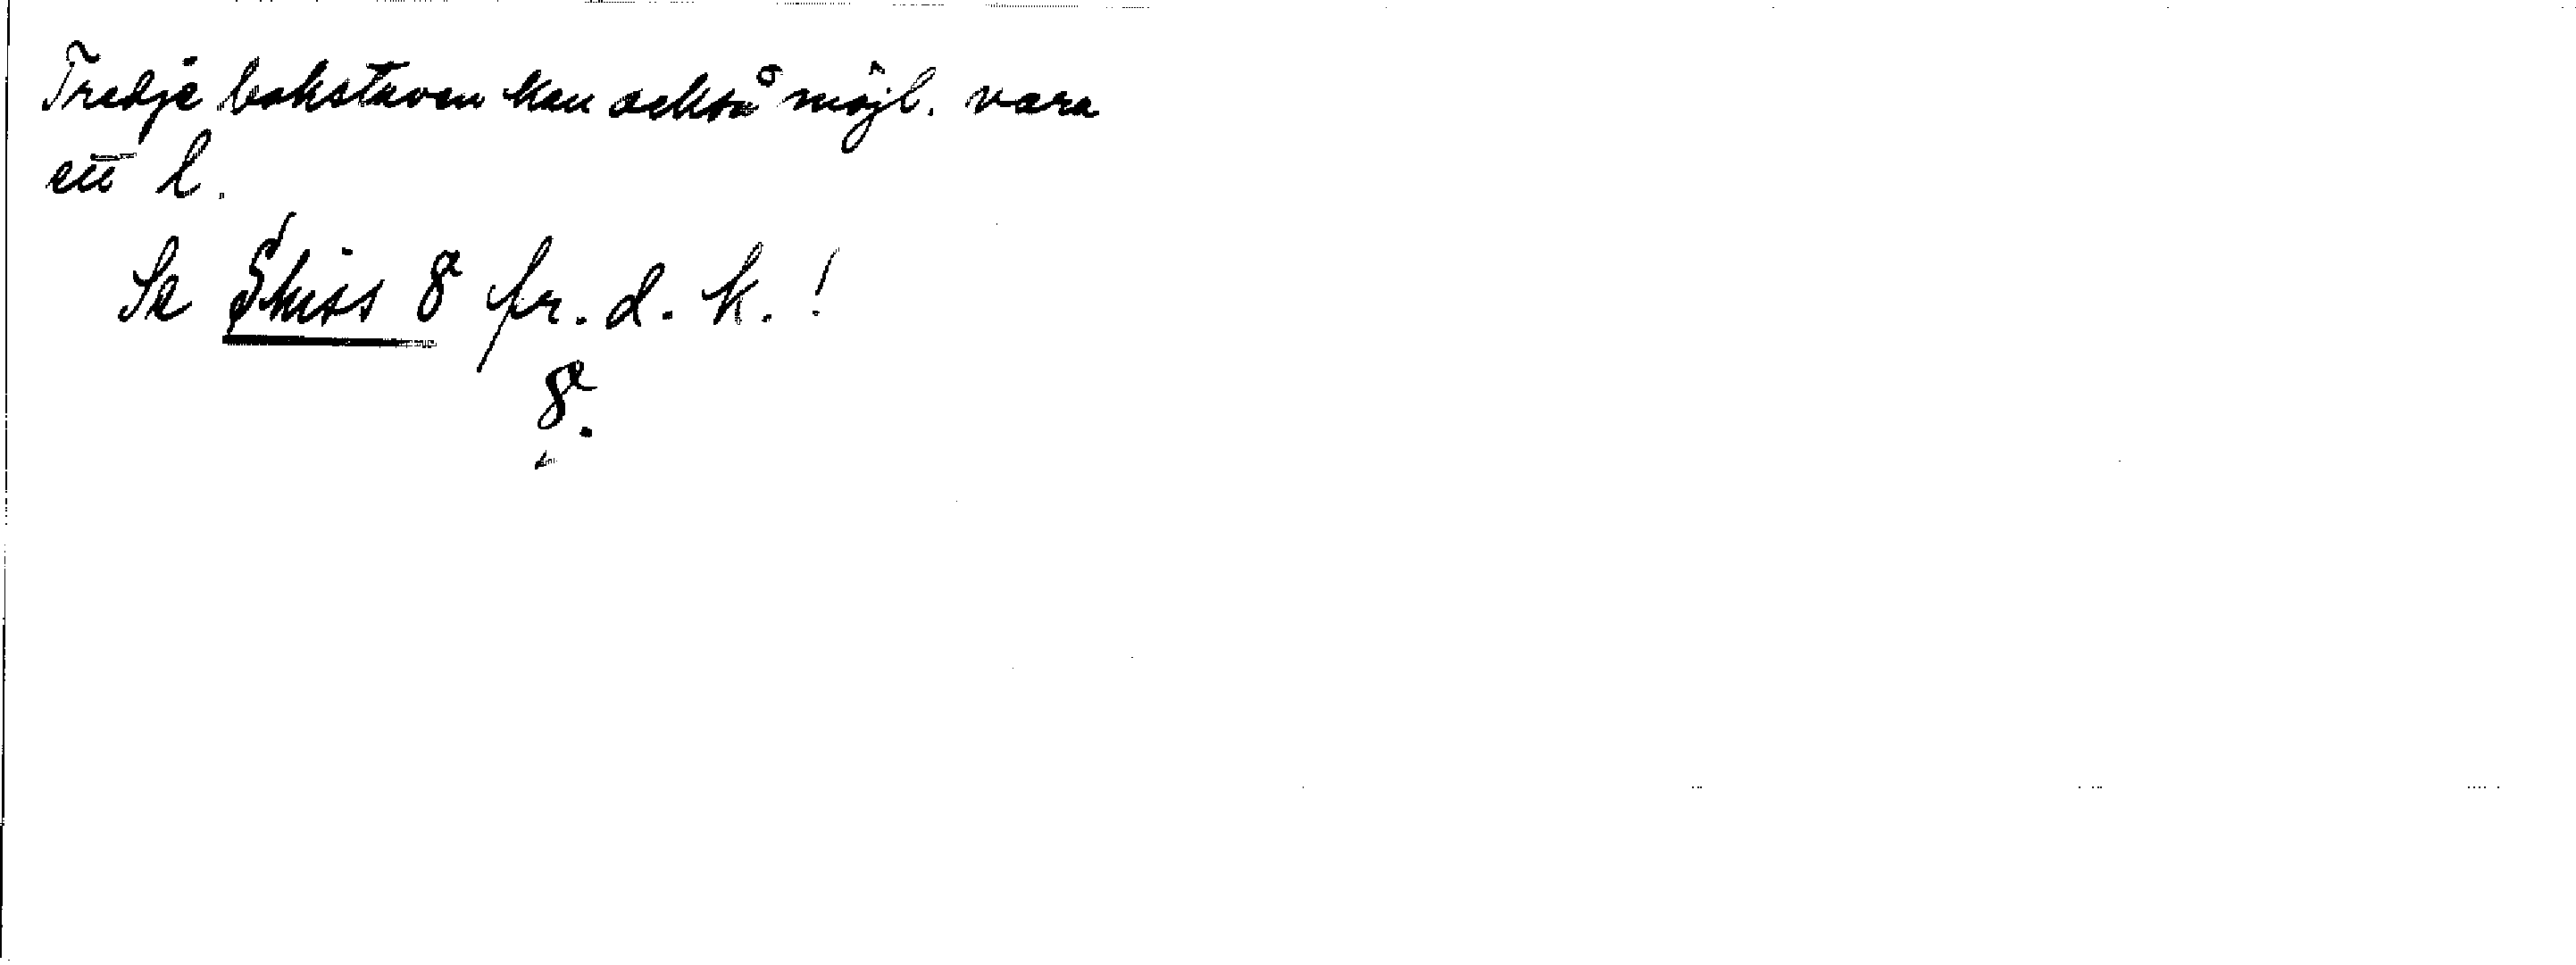 Tredje bokstaven kan också möjl. vara
ett l.
Se Skiss 8 fr. d. k.!
8.